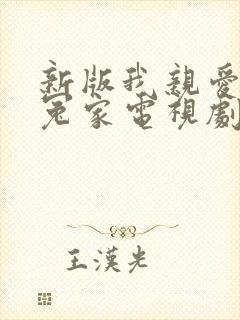 新版我親愛
冤家電視劇
王漢光